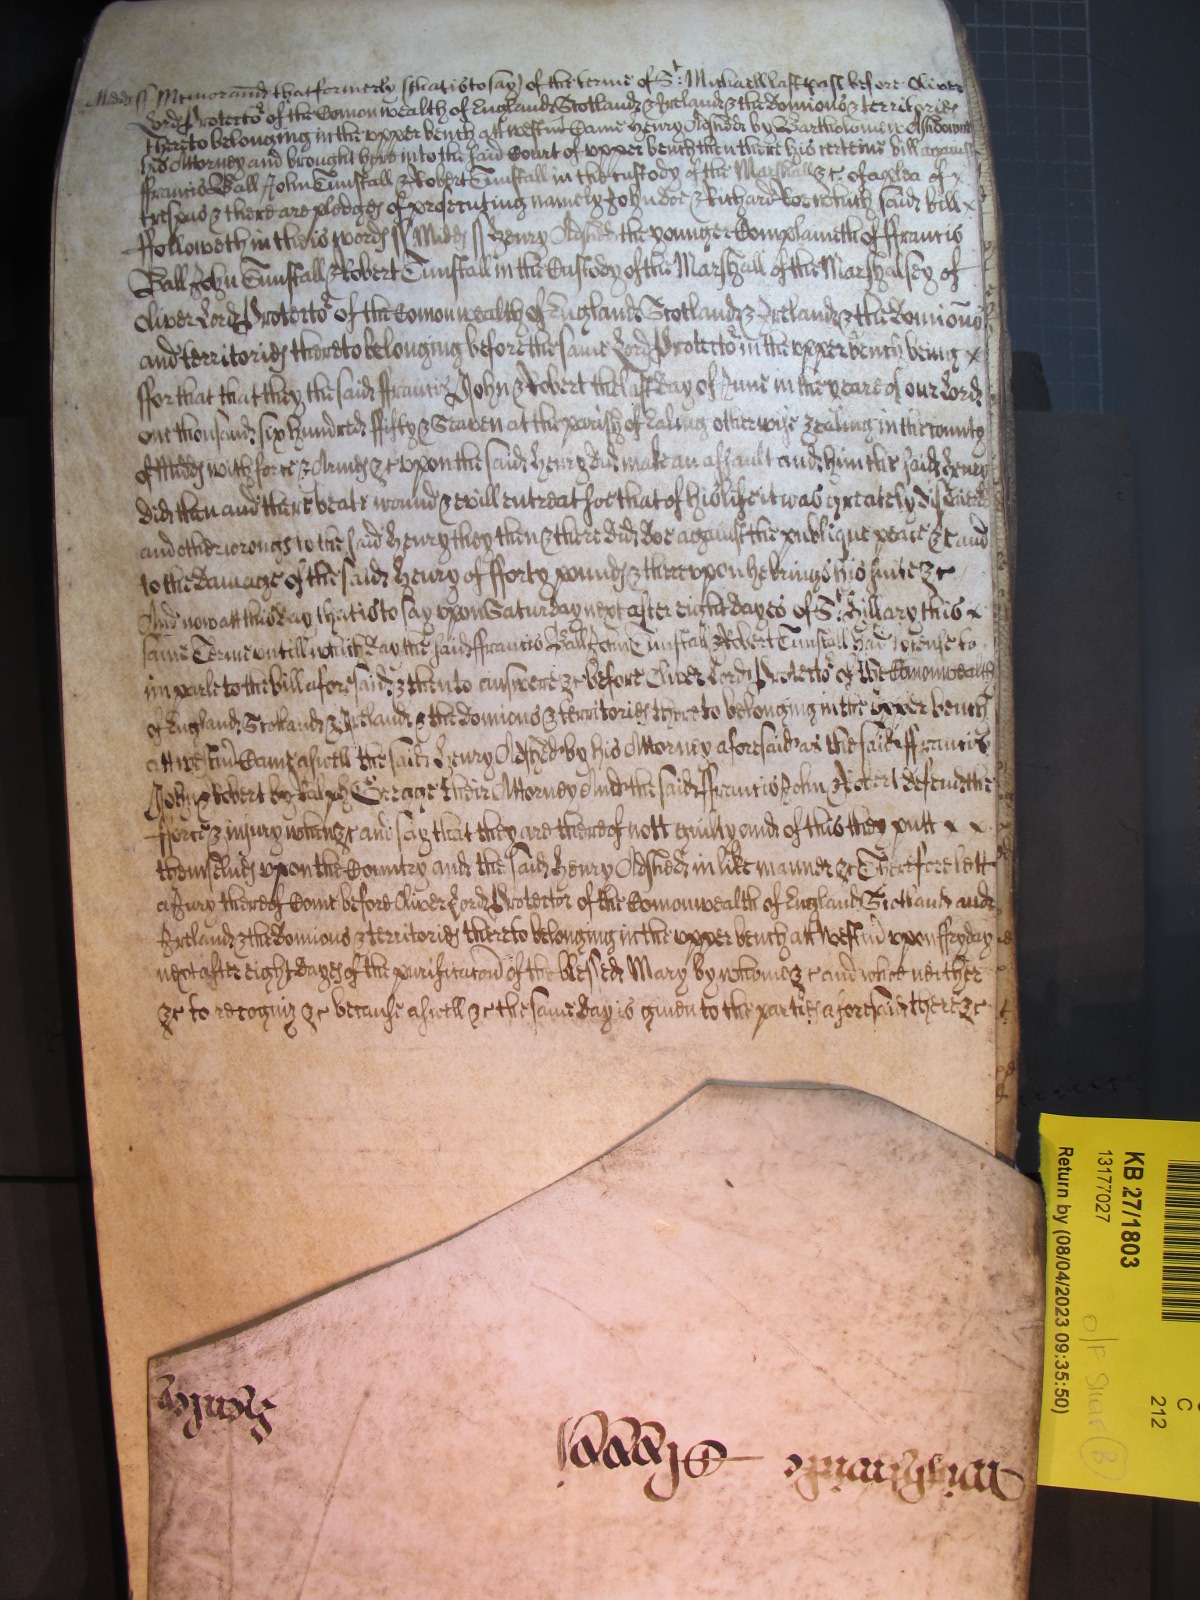 Midds ss Memorand that formerly (that is to say) of the terme of St. Michaell last past before Oliver
Lord Protector of the Comonwealth of England Scotland & Ireland & the Dominions & territories
thereto belonging in the upper bench att Westm Came Henry Oldshed by Bartholomew
his Attorney and brought here into the said Court of upper bench then there his certeine bill against
ffrancis Ball John Tunstall & Robert Tunstall in the custody of the Marshall &c of a plea of x
trespas & there are pledges of prosecuting namely John Doe & Richard Roe which said bill x
ffolloweth in theis words ss Midds ss Henry Oldshed the younger Complaineth of ffrancis
Ball John Tunstall & Robert Tunstall in the Custody of the Marshall of the Marshalsey of
Oliver Lord Protector of the Comonwealth of England Scotland & Ireland & the Dominions
and territories thereto belonging before the same Lord Protector in the upper bench being x
ffor that that they the said ffrancis John & Robert the last day of June in the yeare of our Lord
one thousand six hundred ffifty & Seaven at the parish of Ealing otherwise Zealing in the county
of Midds with force & Armes &c upon the said Henry did make an assault and him the said Henry
did then and there beate wound & evill entreat soe that of his life it was greately dispaired
and other wrongs to the said Henry they then & there did doe against the publique peace &c and
to the damage of the said Henry of fforty pounds & thereupon he brings his suite &c
And now att this day that is to say upon Saturday next after eight dayes of St. Hillary this x
same Terme untill which day the said ffrancis Ball John Tunstall & Robert Tunstall had license to
imparle to the bill aforesaid & then to answere &c before Oliver Lord Protector of the Comonwealth
of England Scotland & Ireland & the Dominions & territories thereto belonging in the upper bench
att Westm Came aswell the said Henry Oldshed by his Attorney aforesaid as the said ffrancis
John & Robert by Ralph their Attorney And the said ffrancis John & Robert defend the
fforce & injury when &c and say that they are thereof nott guilty and of this they putt x x
themselves upon the Country and the said Henry Oldshed in like manner &c Therefore lett
a Jury thereof Come before Oliver Lord Protector of the Comonwealth of England Scotland and
Ireland & the Dominions & territories thereto belonging in the upper bench att Westm upon ffryday
next after eight dayes of the purificacon of the blessed Mary by whome &c and who neither
&c to recogniz &c because aswell &c the same day is given to the parties aforesaid there &c
KB 27/1803
13177027
Return by (08/04/2023 09:35:50)
C
212